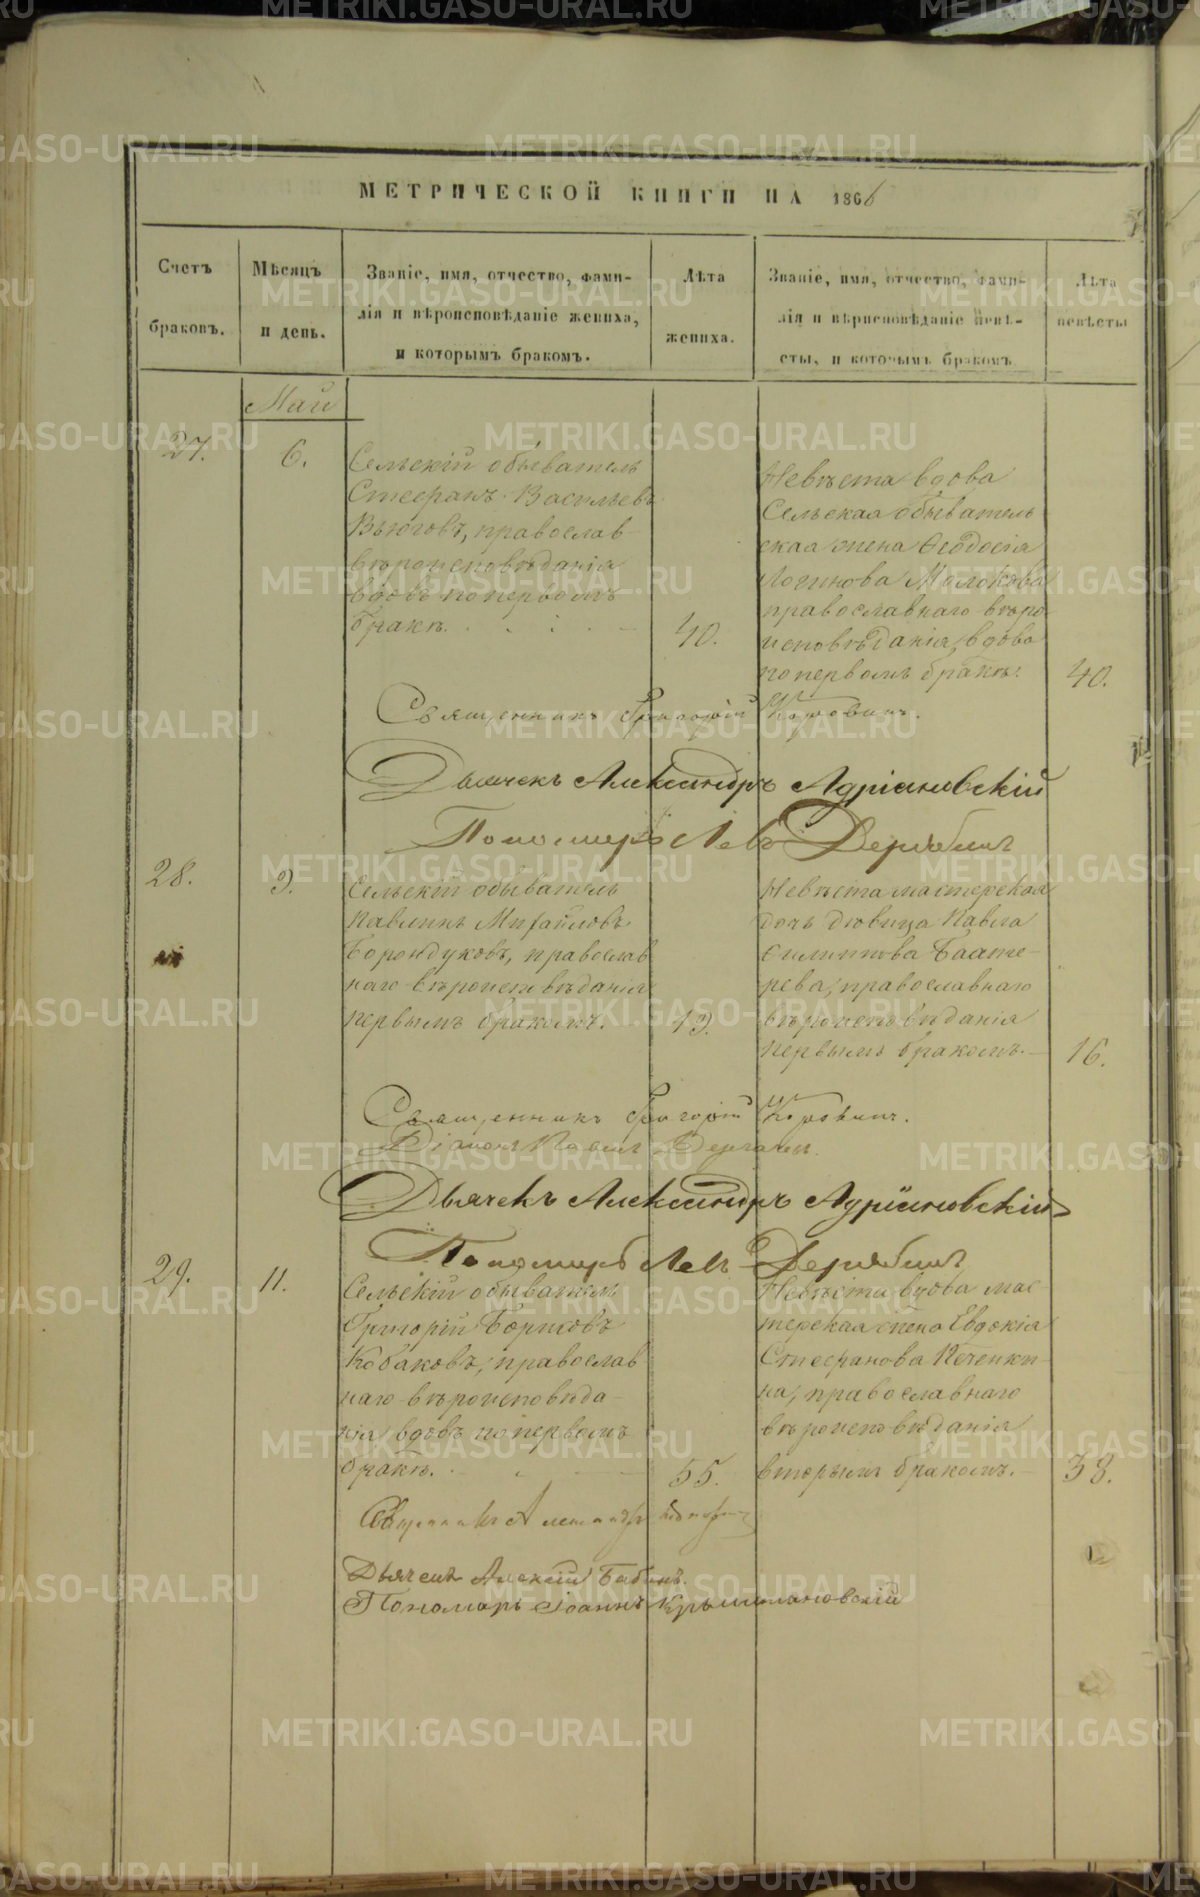 МЕТРИЧЕСКОЙ КНИГИ НА 1866
Счетъ
браковъ.
Мѣсяцъ
и день.
Званіе, имя, отчество, фами-
лія и вѣроисповѣданіе жениха,
и которымъ бракомъ.
Лѣта
жениха.
Званіе, имя, отчество, фами-
лія и вѣрисповѣданіе невѣ-
сты, и которымъ бракомъ
Лѣта
невѣсты
Май
27.
6.
Сельскій обыватель
Стефанъ Васильевъ
Вьюговъ, православ
вѣроисповѣданія
вдовъ поперво​мъ
бракѣ.
40.
Невѣста вдова
Сельская обыватель
ская жена Ѳеодосія
Логинова Молокова
православнаго вѣро
исповѣданія, вдова
поперво​мъ бракѣ.
40.
Священникъ Григорій Коровинъ.
Дьячекъ Александръ Адріановскій
Пономарь Левъ Дерябинъ
28.
9.
Сельскій обыватель
Павлинъ Михайловъ
Борондуковъ, православ
наго вѣроисповѣданія
первымъ бракомъ.
19.
Невѣста мастерская
дочь дѣвица Павла
Филиппова Баате-
рева, православнаго
вѣроисповѣданія
первымъ бракомъ.
16.
Священникъ Григорій Коровинъ.
Діаконъ Павелъ
Дьячекъ Александръ Адріановскій
Пономарь Левъ Дерябинъ
29.
11.
Сельскій обыватель
Григорій Борисовъ
Кобаковъ, православ
наго вѣроисповѣда-
нія вдовъ поперво​мъ
бракѣ.
55.
Невѣста вдова мас
терская жена Евдокія
Стефанова Печенки-
на, православнаго
вѣроисповѣданія
вторымъ бракомъ.
38.
Священникъ Александръ
Дьячекъ Алексѣй Бабинъ.
Пономарь Іоаннъ
METRIKI.GASO-URAL.RU